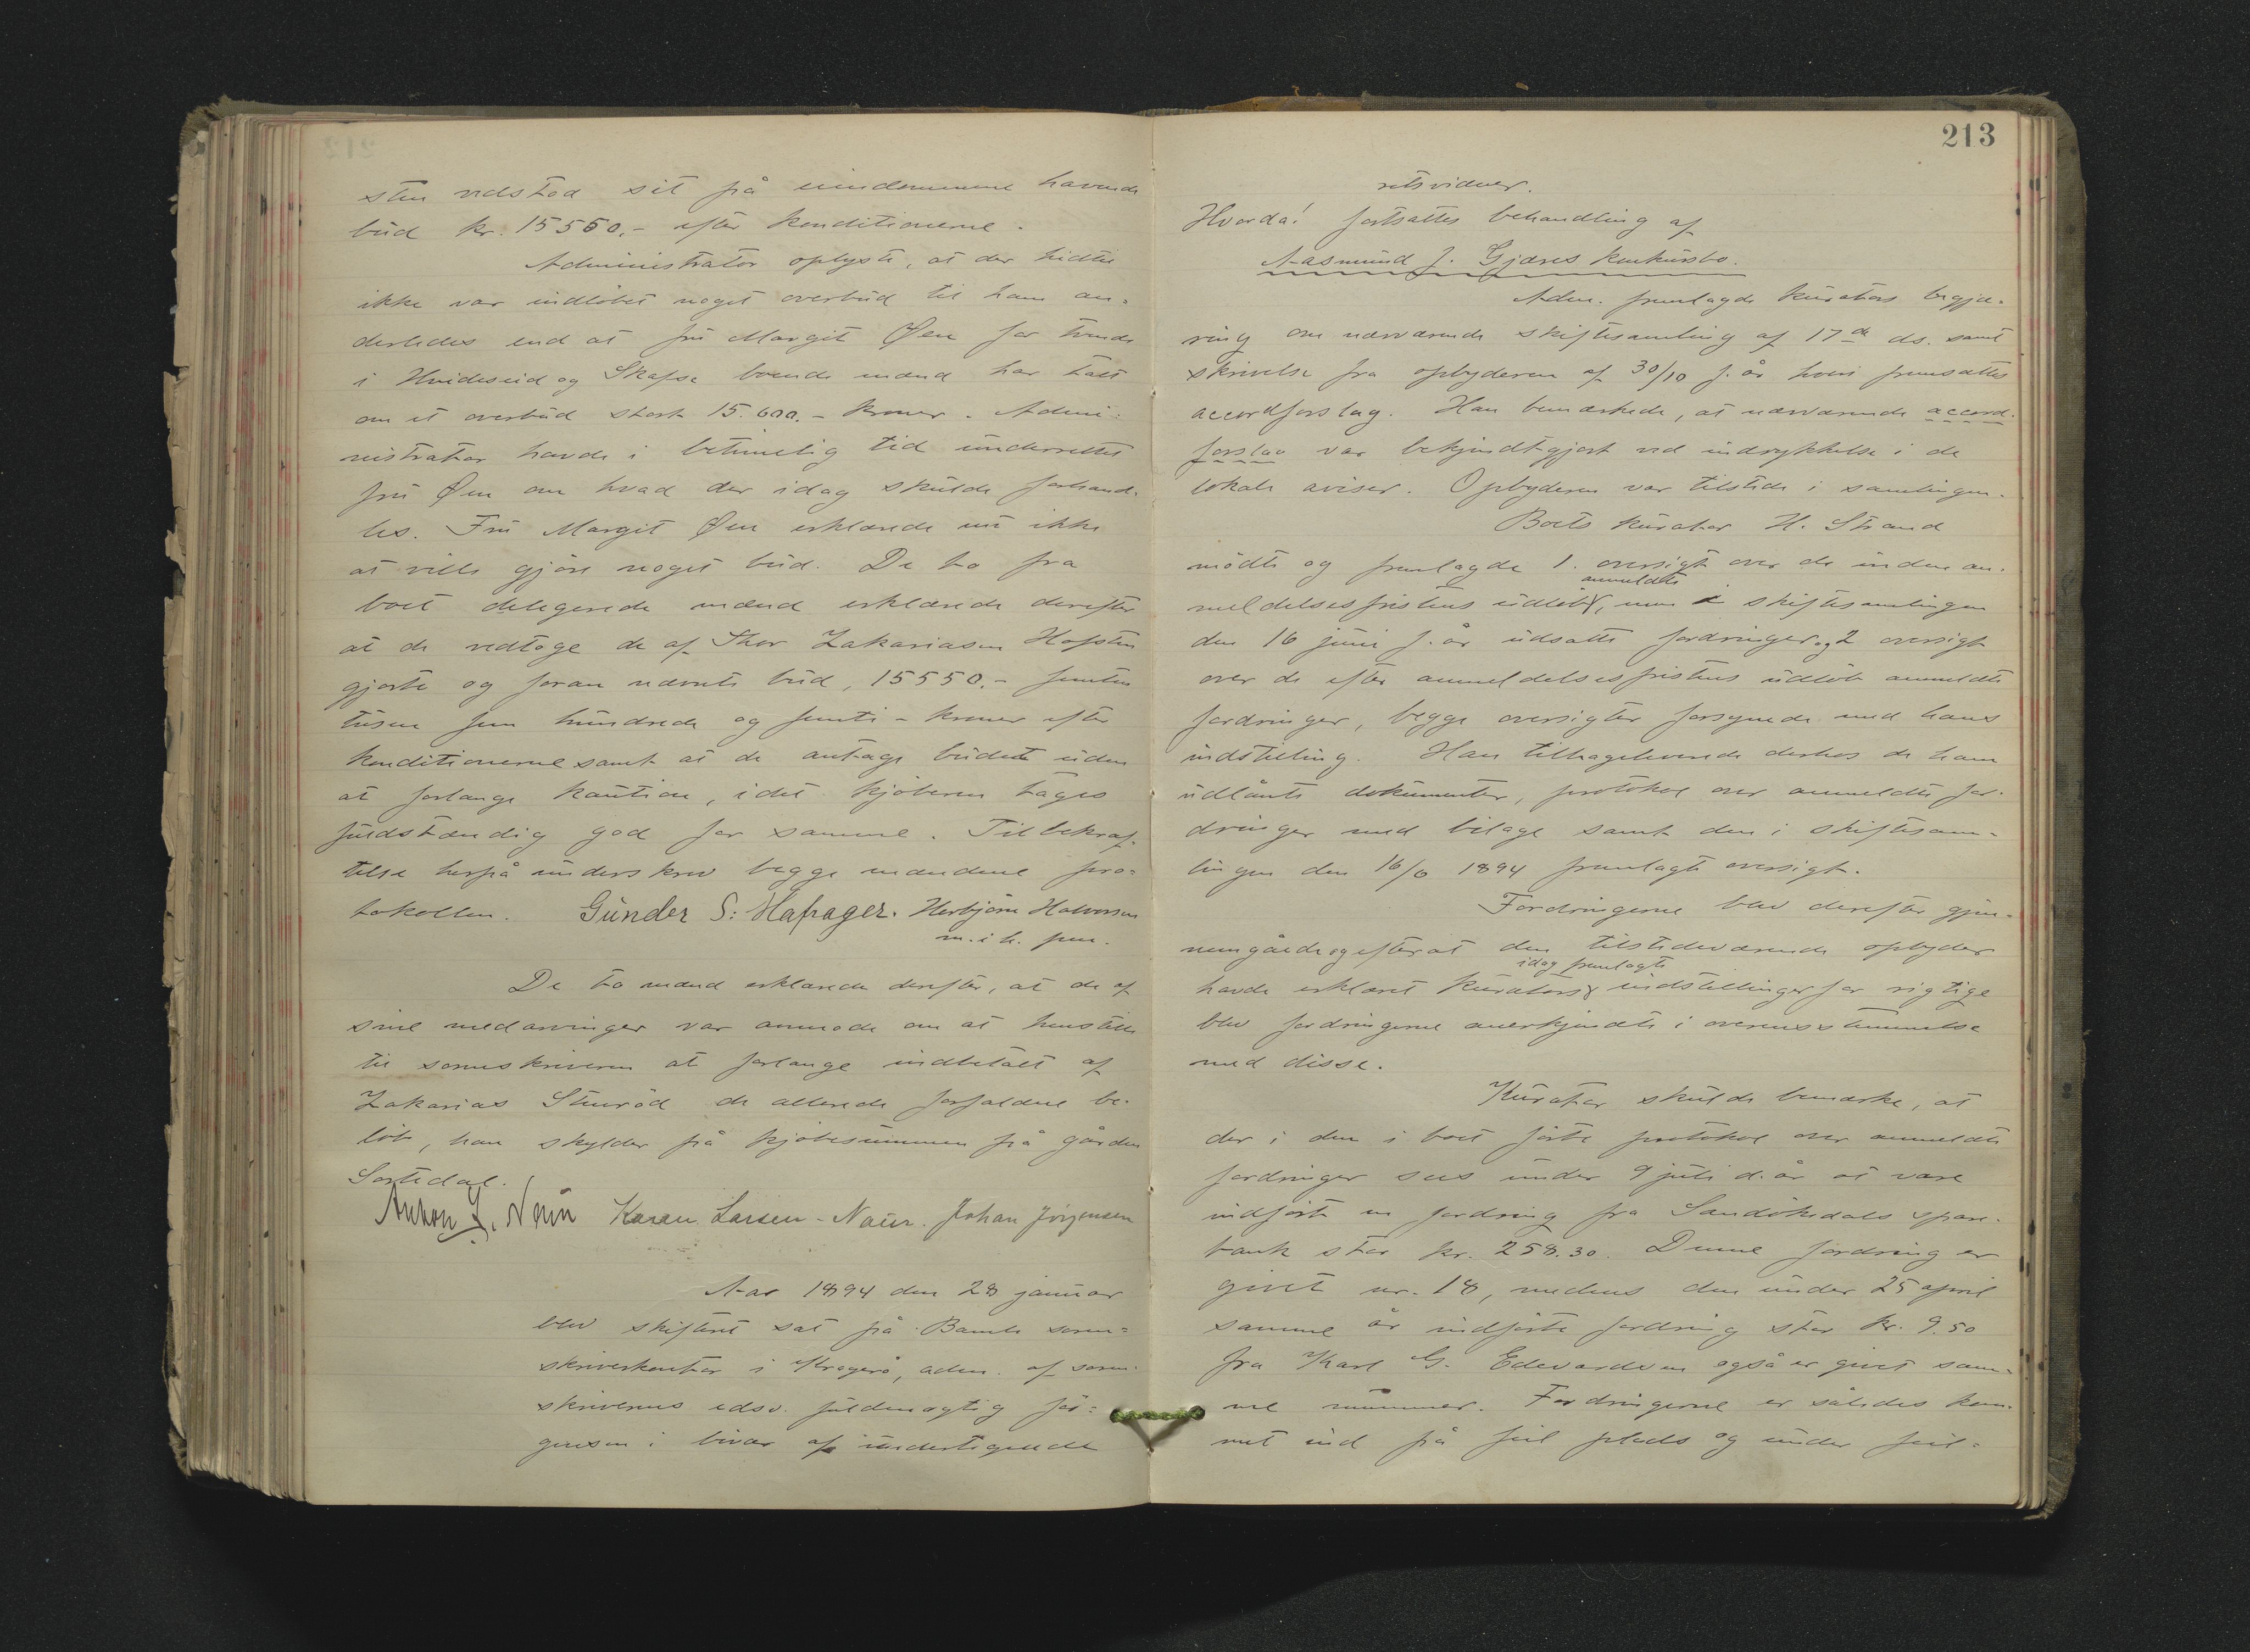 sten vedstod sit på eiendommene havende
bud kr. 15550.- efter konditionerne.
Administrator oplyste, at der hidtil
ikke var indløbet noget overbud til ham an-
derledes end at fru Margit Øen for tvende
i Hvideseid og Skafse boende mænd har talt
om et overbud stort 15.600.- kroner. Admi-
nistrator havde i betimelig tid underrettet
fru Øen om hvad der idag skulde forhand-
les. Fru Margit Øen erklærede nu ikke
at ville gjøre noget bud. De to fra
boet delegerede mænd erklærede derefter
at de vedtoge de af Thor Zakariasen Hafsten
gjorte og foran nævnte bud, 15550.- femten
tusen fem hundrede og femti - kroner efter
konditionerne samt at de antage budet uden
at forlange kaution, idet kjøberen tages
fuldstændig god for samme. Til bekræf-
telse herpå underskrev begge mændene pro-
tokollen. Gunder S: Hafrager. Herbjørn Halvorsen
m. i h. pen.
De to mænd erklærede derefter, at de af
sine medarvinger var anmode om at henstille
til sorenskriveren at forlange indbetalt af
Zakarias Stenrød de allerede forfaldne be-
løb, han skylder på kjøbesummen på gården
Sortedal.
Anton L. Næs Karen Larsen-Næss. Johan Jörgensen
Aar 1894 den 28 januar
blev skifteret sat på Bamle soren-
skriverkontor i Kragerø, adm. af soren-
skriverens edsv. fuldmægtig Jör-
gensen i bivær af undertegnede
213
retsvidner.
Hvorda! fortsattes behandling af
Aasmund J. Gjæres konkursbo.
Adm. fremlagde kurators begjæ-
ring om nærværende skiftesamling af 17de ds. samt
skrivelse fra opbyderen af 30/10 f. år hvori fremsattes
accordforslag. Han bemærkede, at nærværende accord-
forslag var bekjendtgjort ved indrykkelse i de
lokale aviser. Opbyderen var tilstede i samlingen.
Boets kurator H. Strand
mødte og fremlagde 1. oversigt over de inden an-
anmeldte
meldelsesfristens udløb, men i skiftesamlingen
den 16 juni f. år udsatte fordringer og 2 oversigt
over de efter anmeldelsesfristens udløb anmeldte
fordringer, begge oversigter forsynede med hans
indstilling. Han tilbageleverede derhos de ham
udlånte dokumenter, protokol over anmeldte for-
dringer med bilage samt den i skiftesam-
lingen den 16/6 1894 fremlagte oversigt.
Fordringerne blev derefter gjen-
nemgåede og efterat den tilstedeværende opbyder
idag fremlagte
havde erklæret kurators indstillinger for rigtige
blev fordringerne anerkjendte i overensstemmelse
med disse.
Kurator skulde bemærke, at
der i den i boet førte protokol over anmeldte
fordringer sees under 9 juli d. år at være
indført en fordring fra Sandøkedals spare-
bank stor kr. 258.30. Denne fordring er
givet nr. 18, medens den under 25 april
samme år indførte fordring stor kr. 9.50
fra Karl G. Edvardsen også er givet sam-
me nummer. Fordringerne er således kom-
met ind på feil plads og under feil-